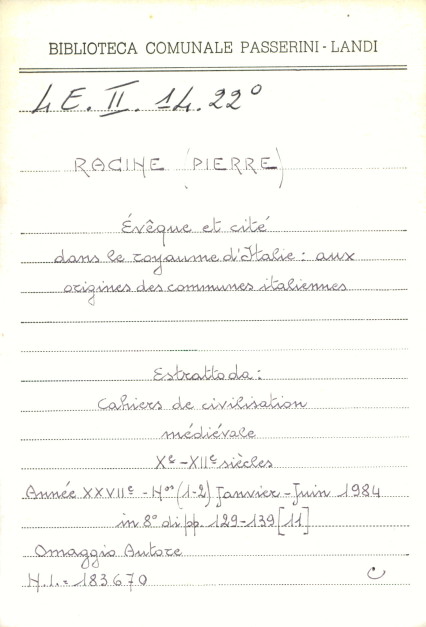 BIBLIOTECA COMUNALE PASSERINI-LANDI
4E. II. 14. 22°
RACINE (PIERRE)
Évêque et cité
dans le royaume d'Italie : aux
origines des communes italiennes
Estratto da :
Cahiers de civilisation
médiévale
Xe-XIIe siècles
Année XXVIIe - Nos (1-2) Janvier-Juin 1984
in 8° di pp. 129-139 [11]
Omaggio Autore
N.I. = 183670
C